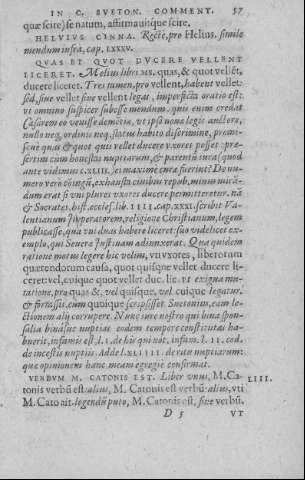 IN C. SVETON. COMMENT. 57
quæ scire) se natum, æstimauisque scire.
HELVIVS CINNA. Rectè, pro Helius. simile
mendum infra, cap. LXXXV.
QVAS ET QVOT DVCERE VELLENT
LICERET. Melius libri MS. quas, & quot vellēt,
ducere liceret. Tres tamen, pro vellent, habent vellet:
sed, siue vellet siue vellent legat, imperfecta oratio est:
vt omnino suspicer subesse mendum. quis enim credat
Cæsarem eo venisse demētiæ, vt ipso nouæ legis auctore,
nullo neq. ordinis neq. status habito discrimine, promi-
scuè quas & quot quis vellet ducere vxores posset: præ-
sertim cùm honestas nuptiarum, & parentū iura (quod
ante vidimus c. XLIII. ) ei maximè curæ fuerint? De nu-
mero verò coniugū, exhaustis ciuibus repub. minus mirā-
dum erat si vni plures vxores ducere permitteretur. nā
& Socrates, hist. eccles. lib. IIII. cap. XXXI. scribit Va-
lentinianum Imperatorem, religione Christianum, legem
publicasse, qua vni duas habere liceret: suo videlicet ex-
emplo, qui Seueræ Iustinam adiunxerat. Qua quidem
ratione motus legere hic velim, vti vxores, liberorum
quærendorum causa, quot quisque vellet ducere li-
ceret: vel, cuique quot vellet duc. lic. vt exigua mu-
tatione, pro quas &, vel quisque, vel cuique legatur.
& fortassis, cum quoique scripsisset Suetonius, eam le-
ctionem alij corrupere. Nunc iure nostro qui bina spon-
salia binasue nuptias eodem tempore constitutas ha-
buerit, infamis est, l. 1. de his qui not. infam. l. II. cod.
de incestis nuptiis. Adde l. XLIIII. de ritu nuptiarum:
quæ opinionem hanc meam egregie confirmat.
VERBVM M. CATONIS EST. Liber vnus, M. Ca- LIII.
tonis verbū est: alius, M. Catonis est verbū: alius, vti
M. Cato ait. legendū puto, M. Catonis est, sine verbū.
D 5 VT